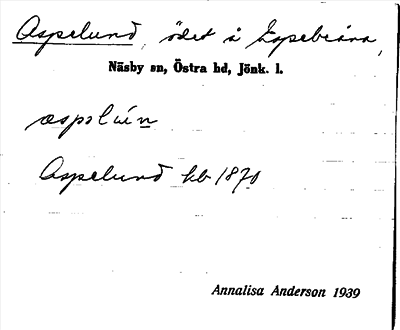 Aspelund, ödet å Espebråna,
Näsby sn, Östra hd, Jönk. l.
æspəlún
Aspelund kb 1870
Annalisa Anderson 1939